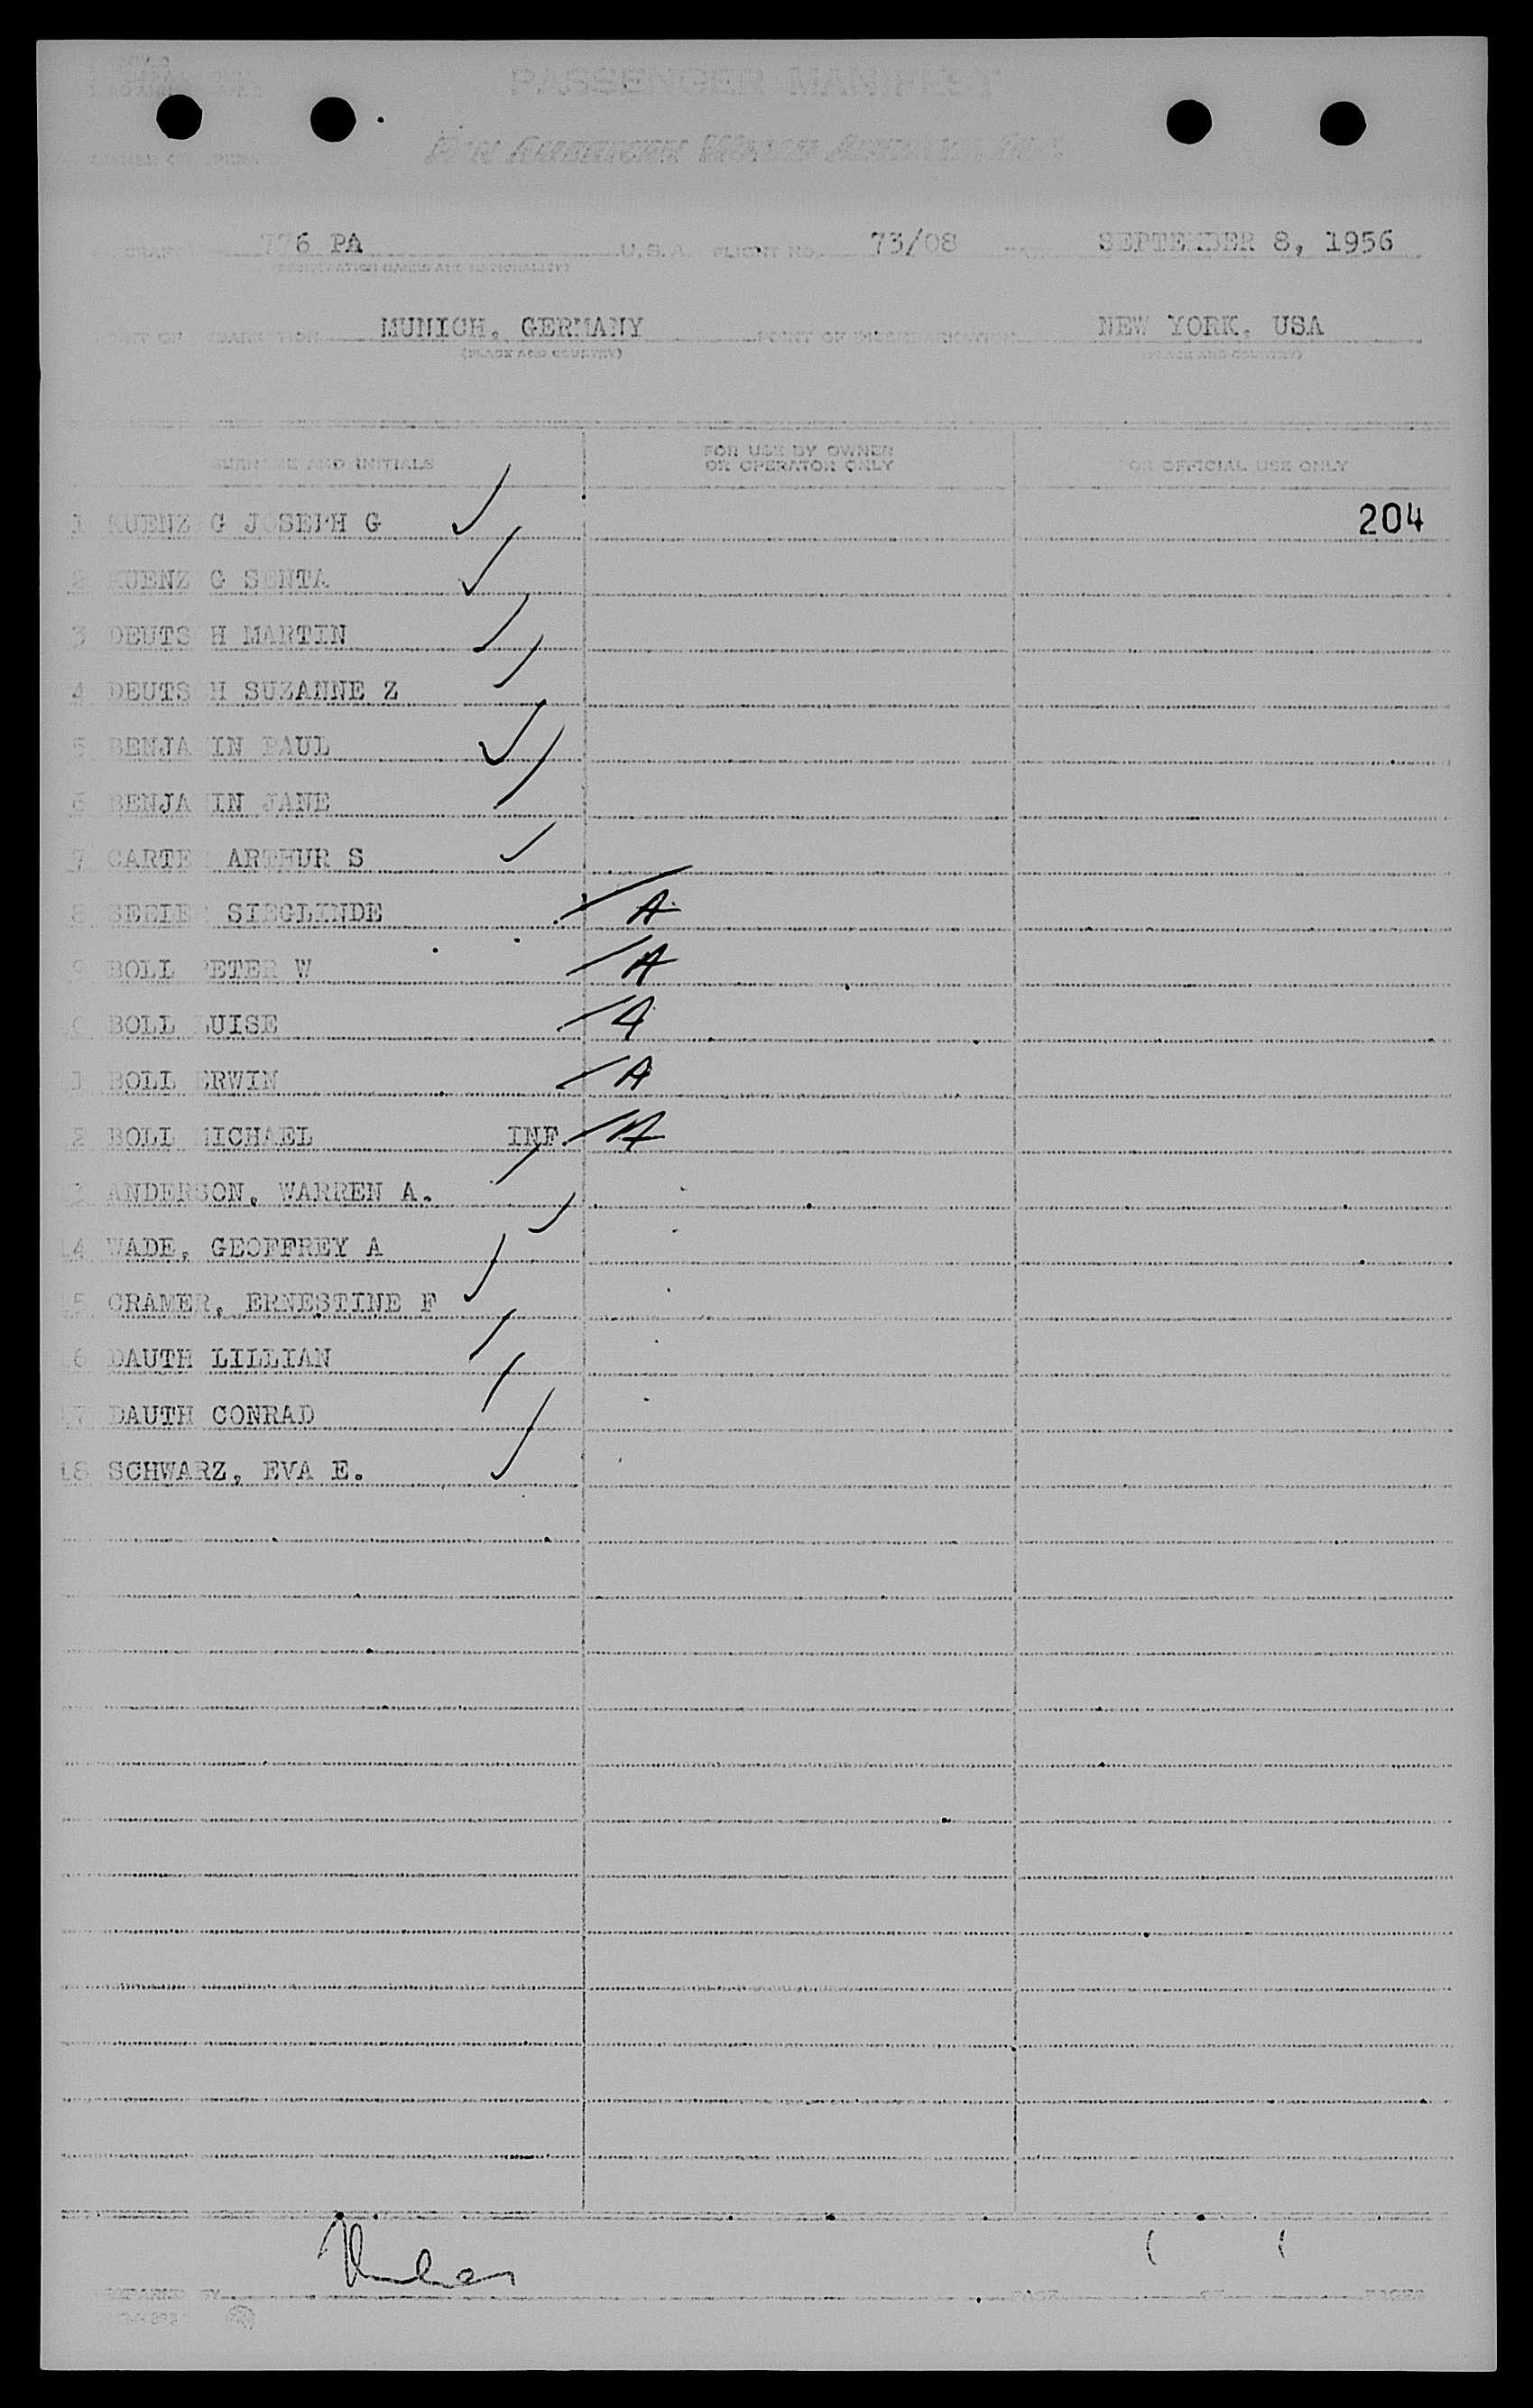 PASSENGER MANIFEST
PAN AMERICAN WORLD AIRWAYS, INC.
776 PA U.S.A. FLIGHT NO. 73/08 SEPTEMBER 8, 1956
(REGISTRATION MARKS AND NATIONALITY)
POINT OF EMBARKATION MUNICH, GERMANY POINT OF DISEMBARKATION NEW YORK, USA
(PLACE AND COUNTRY) (PLACE AND COUNTRY)
SURNAME AND INITIALS FOR USE BY OWNER OR OPERATOR ONLY FOR OFFICIAL USE ONLY
1 G JOSEPH G 204
2 G SENTA
3 DEUTSCH MARTIN
4 DEUTSCH SUZANNE Z
5 BENJAMIN PAUL
6 BENJAMIN JANE
7 CARTER ARTHUR S
8 SIEGLINDE A
9 BOLL PETER W A
10 BOLL LUISE A
11 BOLL ERWIN A
12 BOLL MICHAEL INF. A
13 ANDERSON, WARREN A.
14 WADE, GEOFFREY A
15 CRAMER, ERNESTINE F
16 DAUTH LILLIAN
17 DAUTH CONRAD
18 SCHWARZ, EVA E.
PREPARED BY PAGE OF PAGES